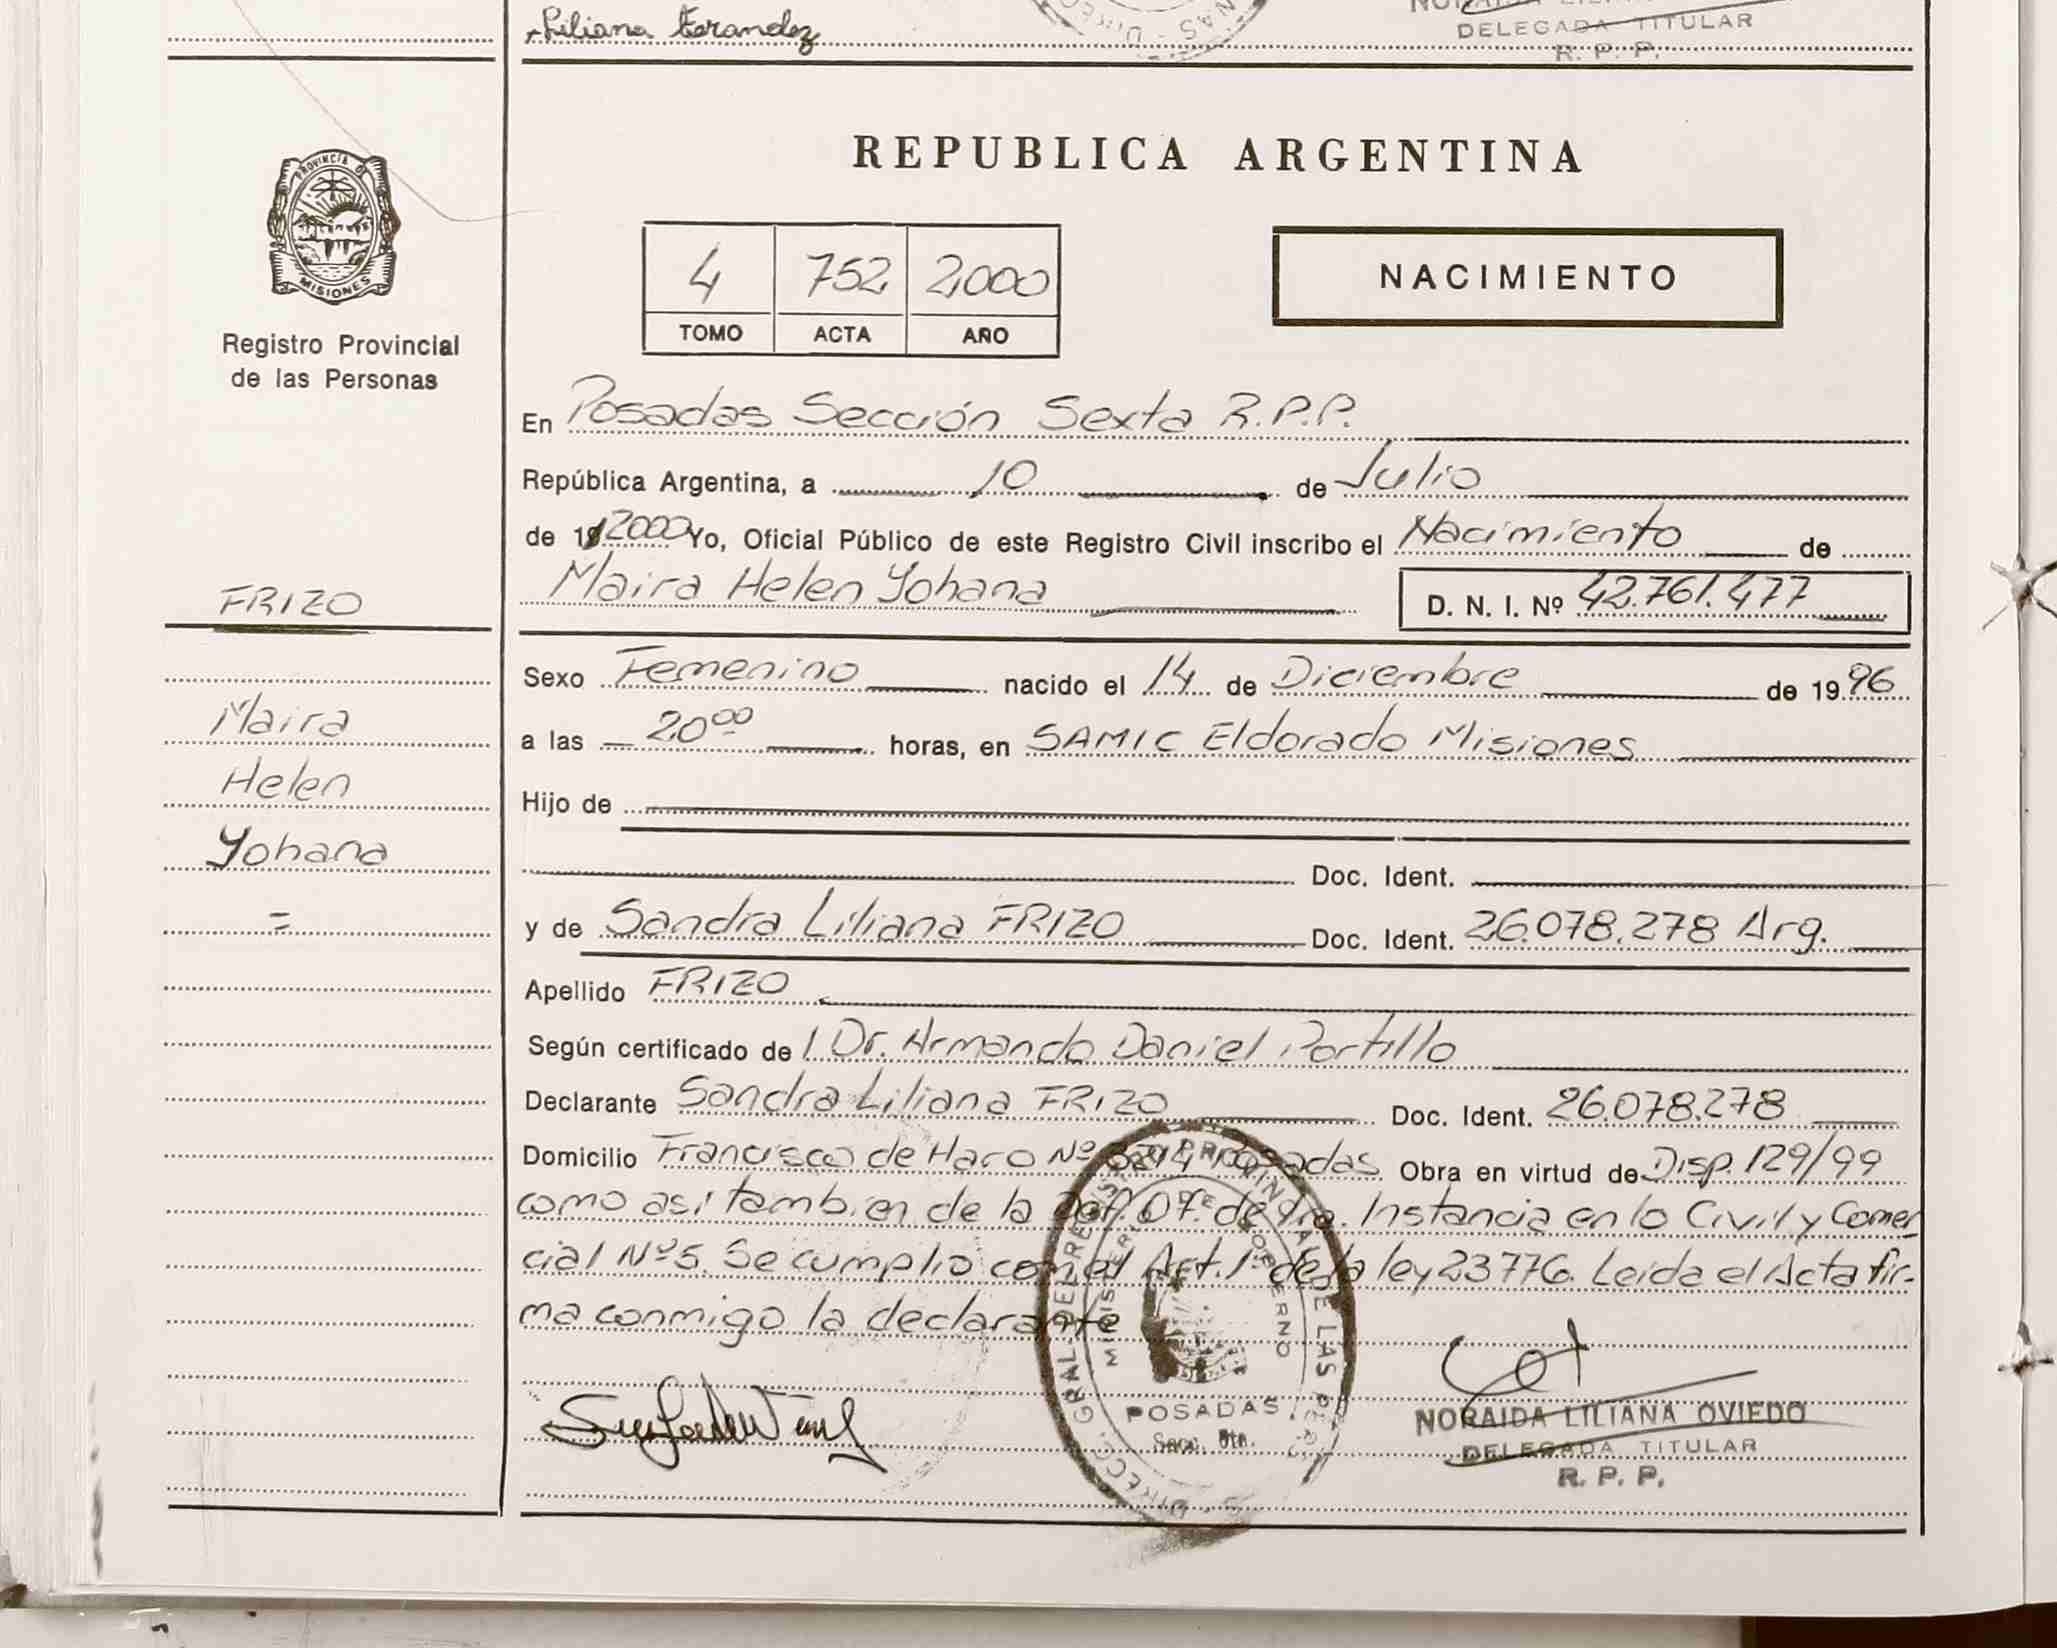 Liliana Ferandez
DELEGADA TITULAR
R. P. P.
PROVINCIA DE
MISIONES
Registro Provincial
de las Personas
REPUBLICA ARGENTINA
4 752 2000
TOMO ACTA AÑO
NACIMIENTO
En Posadas Sección Sexta R.P.P.
República Argentina, a 10 de Julio
de 19 2000 Yo, Oficial Público de este Registro Civil inscribo el Nacimiento de
Maira Helen Yohana D. N. I. Nº 42.761.477
FRIZO
Maira
Helen
Yohana
=
Sexo Femenino nacido el 14 de Diciembre de 19 96
a las 20 00 horas, en SAMIC Eldorado Misiones
Hijo de
Doc. Ident.
y de Sandra Liliana FRIZO Doc. Ident. 26.078.278 Arg.
Apellido FRIZO
Según certificado de l Dr. Armando Daniel Portillo
Declarante Sandra Liliana FRIZO Doc. Ident. 26.078.278
Domicilio Francisco de Haro Nº Posadas Obra en virtud de Disp. 129/99
como asi tambien de la Def. Of. de 1ra. Instancia en lo Civil y Comer
cial Nº 5. Se cumplio con el Art. 1 de la ley 23776. Leida el Acta fir-
ma conmigo la declarante
DIRECC. GRAL. DEL REGISTRO PROVINCIAL DE LAS PERS
MINISTERIO DE GOBIERNO
POSADAS
Secc. 6ta.
NORAIDA LILIANA OVIEDO
DELEGADA TITULAR
R. P. P.